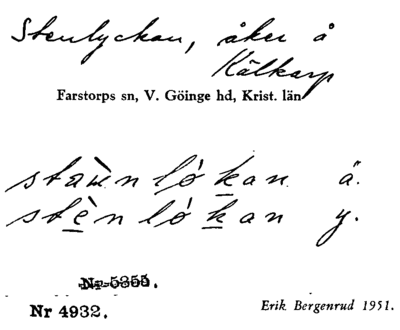 Stenlyckan, åker å
Kälkarp
Farstorps sn, V. Göinge hd, Krist. län
stæ̀nlọ́kan ä.
stènlọ́kan y.
Nr 5355.
Nr 4932.
Erik Bergenrud 1951.